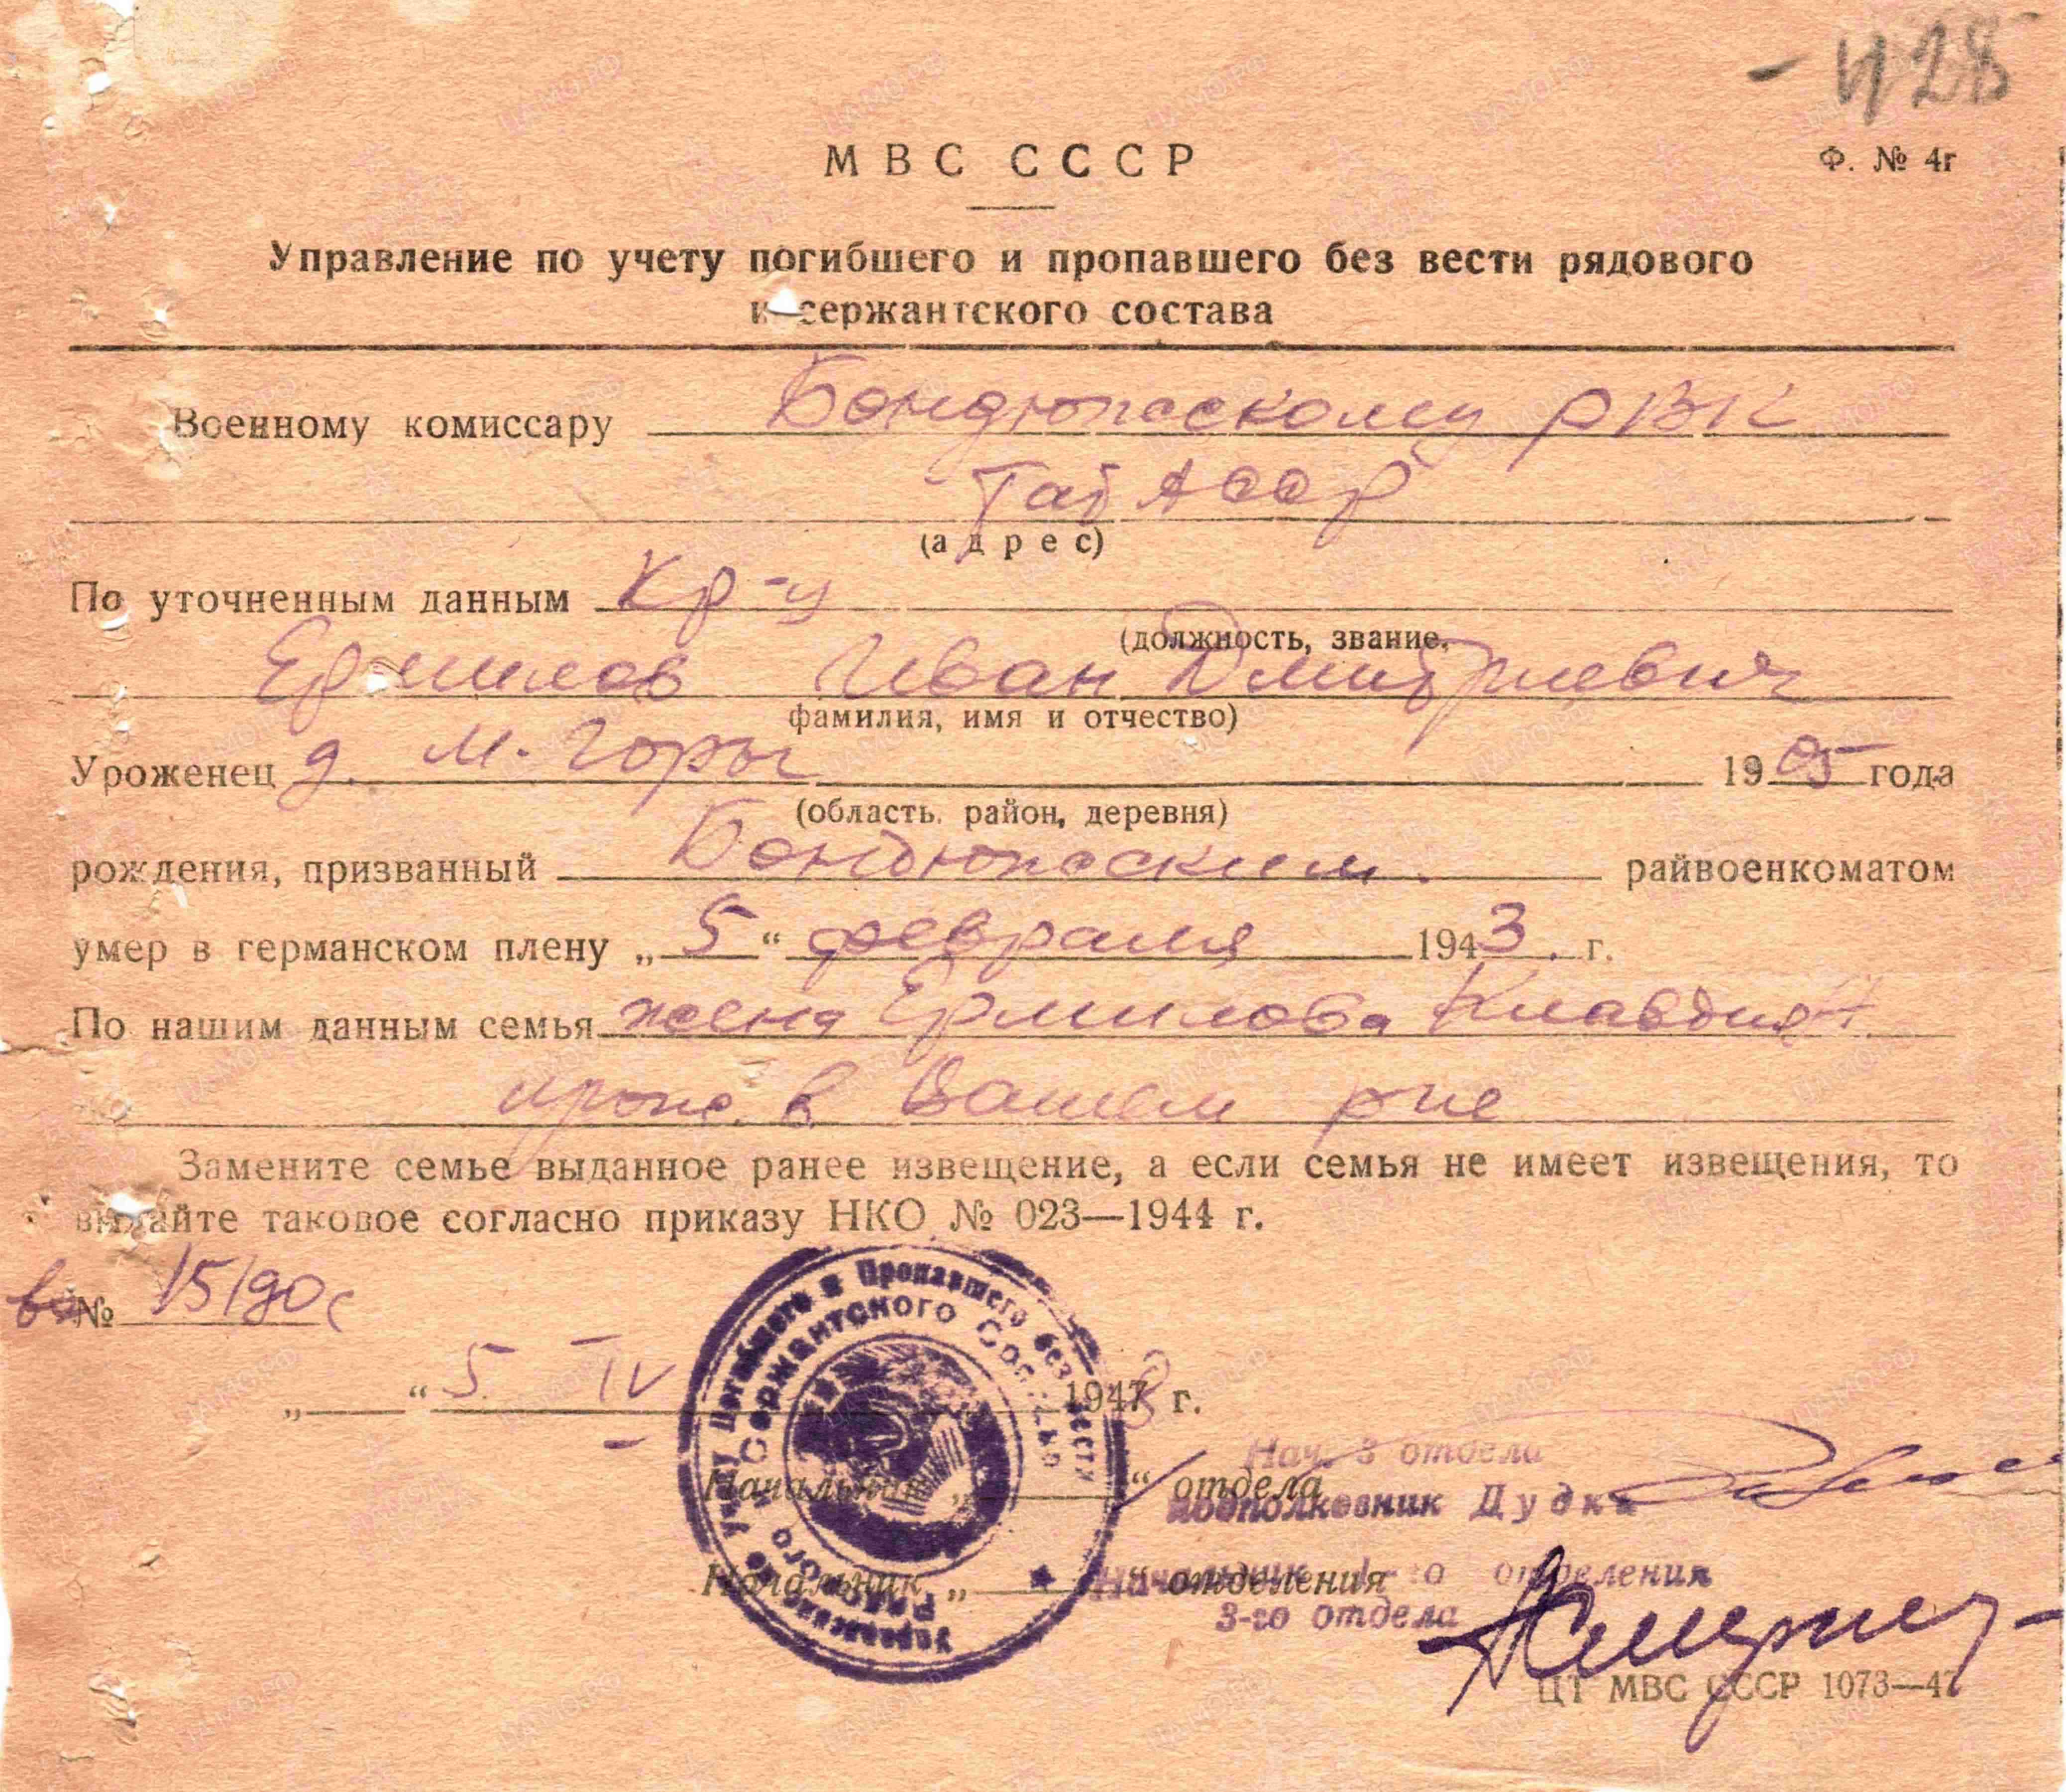 - 428
МВС СССР
Ф. № 4г
Управление по учету погибшего и пропавшего без вести рядового
и сержантского состава
Военному комиссару Бондюжскому РВК
Тат АССР
(адрес)
По уточненным данным Кр-ц
(должность, звание,
Ермилов Иван Дмитриевич
фамилия, имя и отчество)
Уроженец д. М. Горы 1905 года
(область, район, деревня)
рождения, призванный Бондюжским райвоенкоматом
умер в германском плену „5“ февраля 1943 г.
По нашим данным семья жена Ермилова Клавдия
прож. в Вашем р-не
Замените семье выданное ранее извещение, а если семья не имеет извещения, то
выдайте таковое согласно приказу НКО № 023—1944 г.
№ 15190с
„ “ 5. IV 1948 г.
Нач. 3 отдела
Начальник „ “ отдела
подполковник Дудка
Начальник „ “ отделения
Начальник 1-го отделения
3-го отдела
ЦТ МВС СССР 1073—47